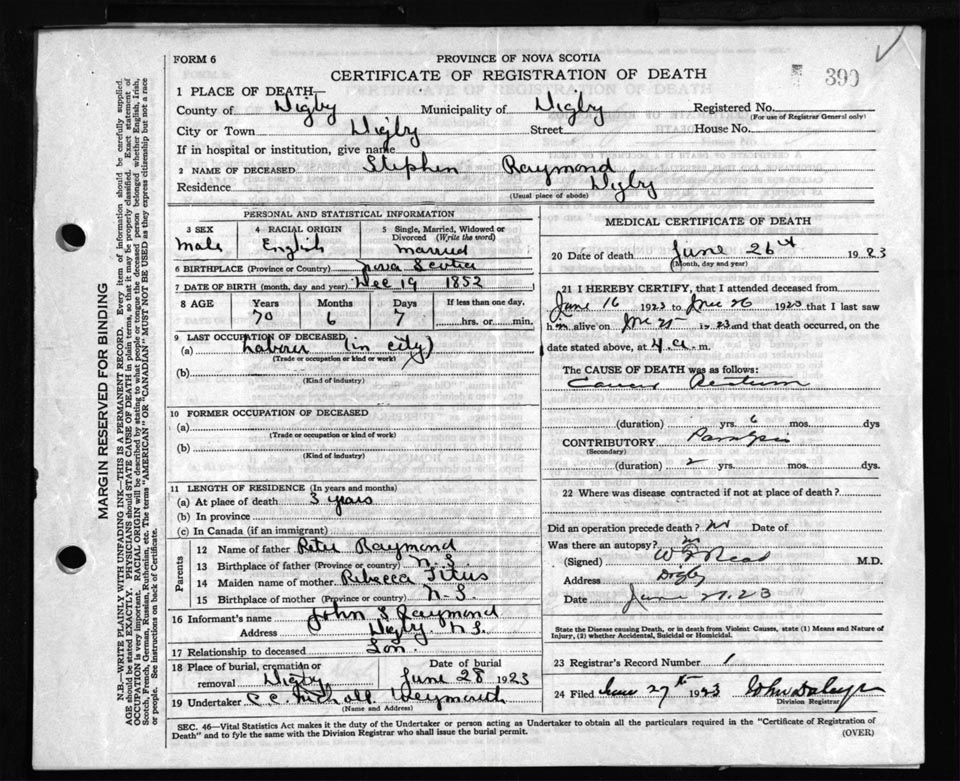 FORM 6
PROVINCE OF NOVA SCOTIA
CERTIFICATE OF REGISTRATION OF DEATH
390
1 PLACE OF DEATH—
County of Digby Municipality of Digby Registered No.
(For use of Registrar General only)
City or Town Digby Street House No.
If in hospital or institution, give name
2 NAME OF DECEASED Stephen Raymond
Residence Digby
(Usual place of abode)
PERSONAL AND STATISTICAL INFORMATION
3 SEX 4 RACIAL ORIGIN 5 Single, Married, Widowed or Divorced (Write the word)
Male English Married
6 BIRTHPLACE (Province or Country) Nova Scotia
7 DATE OF BIRTH (month, day and year) Dec 19 1852
8 AGE Years Months Days If less than one day,
70 6 7 hrs. or min.
9 LAST OCCUPATION OF DECEASED
(a) Laborer (in city)
(Trade or occupation or kind or work)
(b)
(Kind of industry)
10 FORMER OCCUPATION OF DECEASED
(a)
(Trade or occupation or kind of work)
(b)
(Kind of industry)
11 LENGTH OF RESIDENCE (In years and months)
(a) At place of death 3 years
(b) In province
(c) In Canada (if an immigrant)
Parents
12 Name of father Peter Raymond
13 Birthplace of father (Province or country) N.S.
14 Maiden name of mother Rebecca Titus
15 Birthplace of mother (Province or country) N.S.
16 Informant's name John S Raymond
Address Digby N.S.
17 Relationship to deceased Son
18 Place of burial, cremation or removal Digby Date of burial June 28 1923
19 Undertaker Weymouth
(Name and Address)
MEDICAL CERTIFICATE OF DEATH
20 Date of death June 26th 1923
(Month, day and year)
21 I HEREBY CERTIFY, that I attended deceased from
June 16 1923 to June 26 1923 that I last saw
him alive on June 25 1923 and that death occurred, on the
date stated above, at 4 a. m.
The CAUSE OF DEATH was as follows:
Cancer Rectum
(duration) yrs. 6 mos. dys
CONTRIBUTORY Paralysis
(Secondary)
(duration) 2 yrs. mos. dys.
22 Where was disease contracted if not at place of death?
Did an operation precede death? no Date of
Was there an autopsy? no
(Signed) M.D.
Address Digby
Date June 27.23
State the Disease causing Death, or in death from Violent Causes, state (1) Means and Nature of
Injury, (2) whether Accidental, Suicidal or Homicidal.
23 Registrar's Record Number 1
24 Filed June 27th 1923
Division Registrar
SEC. 46—Vital Statistics Act makes it the duty of the Undertaker or person acting as Undertaker to obtain all the particulars required in the "Certificate of Registration of
Death" and to fyle the same with the Division Registrar who shall issue the burial permit. (OVER)
MARGIN RESERVED FOR BINDING
N.B.—WRITE PLAINLY WITH UNFADING INK—THIS IS A PERMANENT RECORD. Every item of information should be carefully supplied.
AGE should be stated EXACTLY. PHYSICIANS should STATE CAUSE OF DEATH in plain terms, so that it may be properly classified. Exact statement of
OCCUPATION is very important. RACIAL ORIGIN will be described by stating to what people or tongue the deceased person belonged whether English, Irish,
Scotch, French, German, Russian, Ruthenian, etc. The terms "AMERICAN" OR "CANADIAN" MUST NOT BE USED as they express citizenship but not a race
or people. See instructions on back of Certificate.